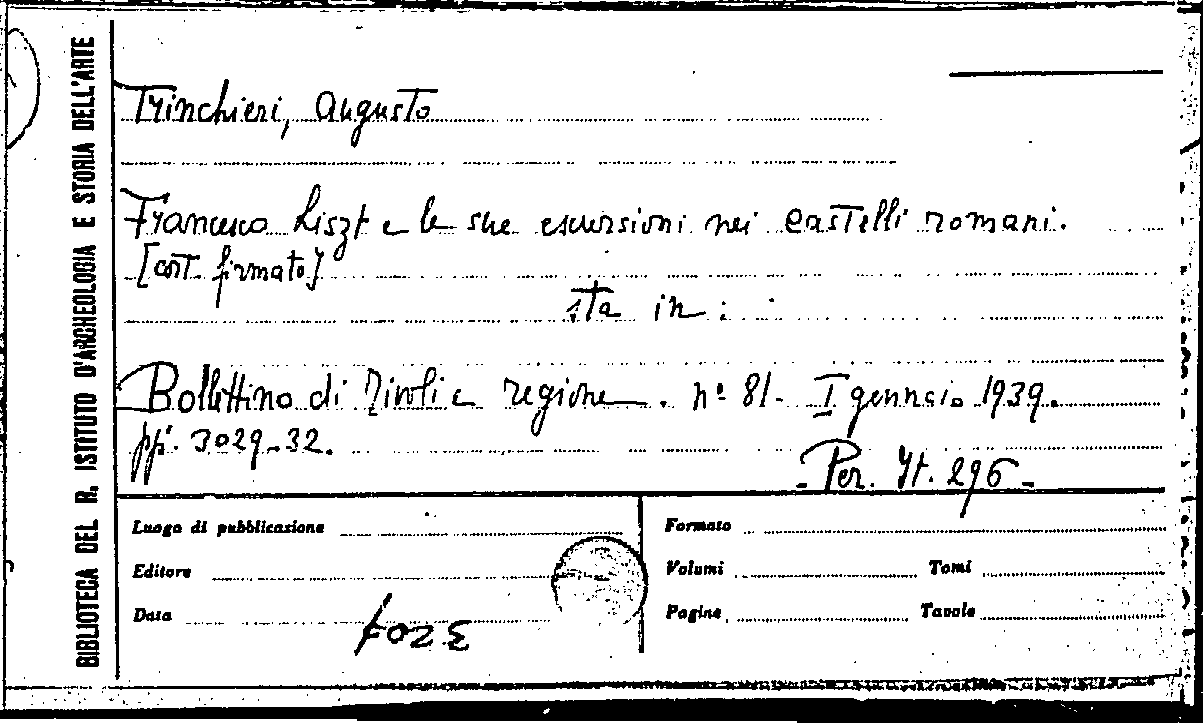 BIBLIOTECA DEL R. ISTITUTO D'ARCHEOLOGIA E STORIA DELL'ARTE
Trinchieri, Augusto
Francesco Liszt e le sue escursioni nei Castelli romani.
[cort. firmato]
sta in:
Bollettino di Tivoli e regione. nº 81- I gennaio 1939.
pp. 3029-32.
- Per. It. 296 -
Luogo di pubblicazione
Formato
Editore
Volumi Tomi
Data
Pagine Tavole